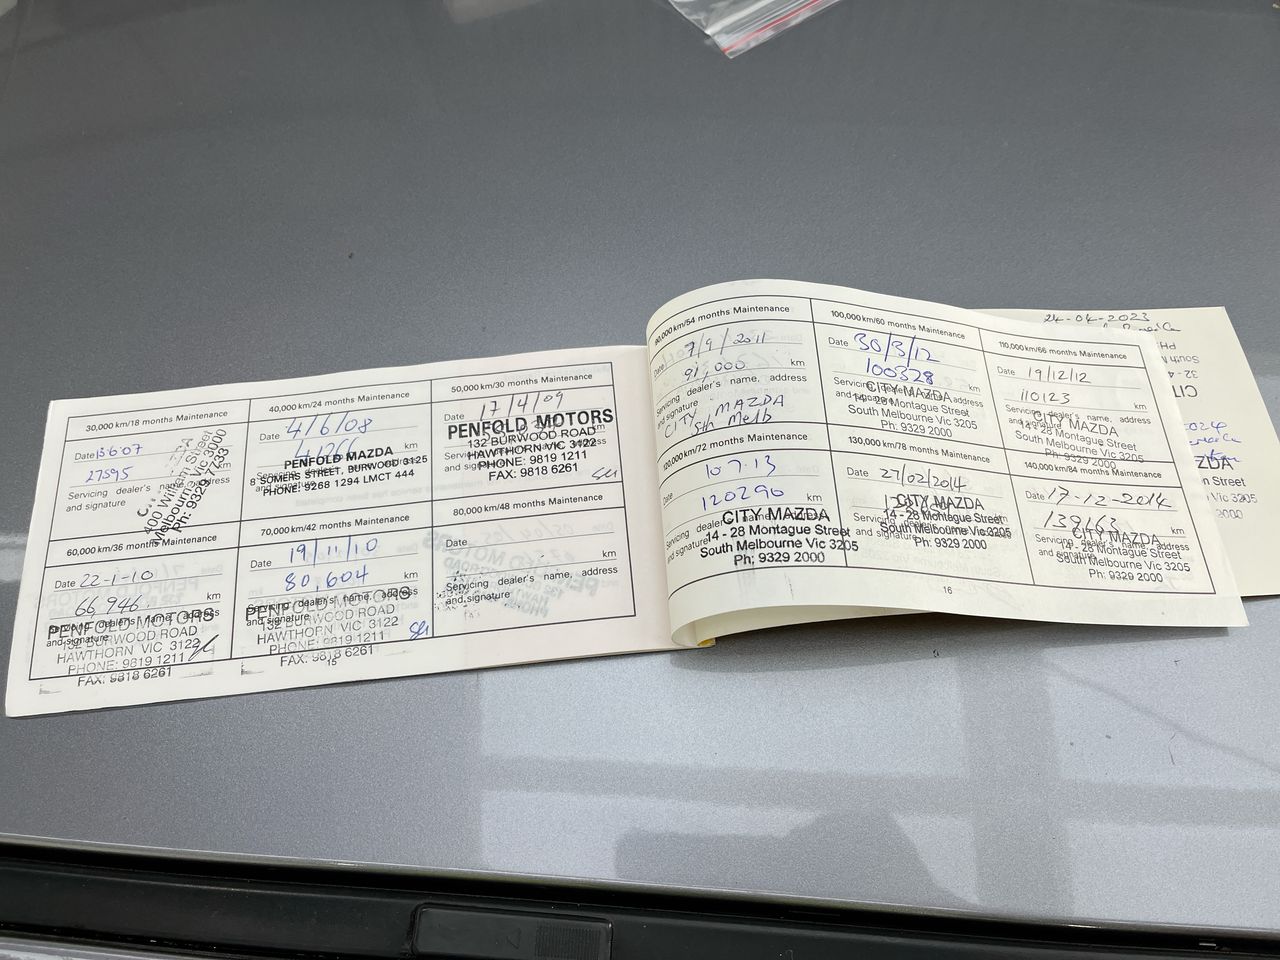 30,000 km/18 months Maintenance
Date 13.6.07
27595 km
Servicing dealer's name, address
and signature
400 William Street
Melbourne Vic 3000
Ph: 9329 7733
40,000 km/24 months Maintenance
Date 4/6/08
km
PENFOLD MAZDA
8 SOMERS STREET, BURWOOD 3125
PHONE: 9268 1294 LMCT 444
50,000 km/30 months Maintenance
Date 17/4/09
PENFOLD MOTORS
132 BURWOOD ROAD
HAWTHORN VIC 3122
PHONE: 9819 1211
FAX: 9818 6261
60,000 km/36 months Maintenance
Date 22-1-10
66 946 km
Servicing dealer's name, address
and signature
PENFOLD MOTORS
132 BURWOOD ROAD
HAWTHORN VIC 3122
PHONE: 9819 1211
FAX: 9818 6261
70,000 km/42 months Maintenance
Date 19/11/10
80,604 km
Servicing dealer's name, address
and signature
PENFOLD MOTORS
132 BURWOOD ROAD
HAWTHORN VIC 3122
PHONE: 9819 1211
FAX: 9818 6261
80,000 km/48 months Maintenance
Date
km
Servicing dealer's name, address
and signature
15
90,000 km/54 months Maintenance
Date 7/9/2011
91,000 km
Servicing dealer's name, address
and signature
CITY MAZDA
Sth Melb
100,000 km/60 months Maintenance
Date 30/3/12
100328 km
CITY MAZDA
14 - 28 Montague Street
South Melbourne Vic 3205
Ph: 9329 2000
110,000 km/66 months Maintenance
Date 19/12/12
110123 km
Servicing dealer's name, address
and signature
CITY MAZDA
14 - 28 Montague Street
South Melbourne Vic 3205
Ph: 9329 2000
120,000 km/72 months Maintenance
Date 10.7.13
120290 km
CITY MAZDA
14 - 28 Montague Street
South Melbourne Vic 3205
Ph: 9329 2000
130,000 km/78 months Maintenance
Date 27/02/2014
km
CITY MAZDA
14 - 28 Montague Street
South Melbourne Vic 3205
Ph: 9329 2000
140,000 km/84 months Maintenance
Date 17-12-2014
139163 km
Servicing dealer's name, address
and signature
CITY MAZDA
14 - 28 Montague Street
South Melbourne Vic 3205
Ph: 9329 2000
16
24-04-2023